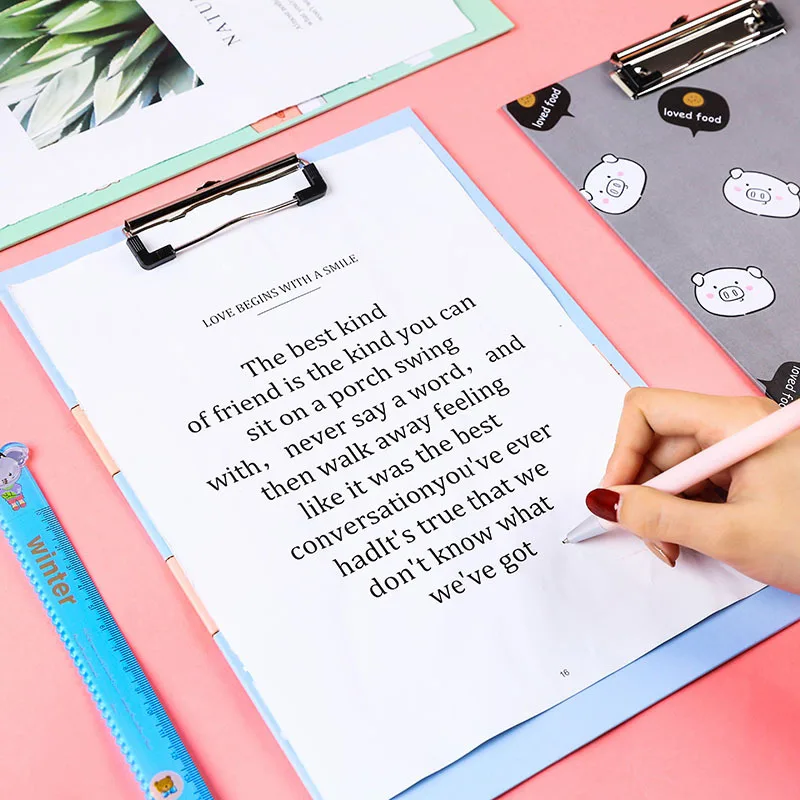 NATUR
LOVE BEGINS WITH A SMILE
The best kind
of friend is the kind you can
sit on a porch swing
with， never say a word， and
then walk away feeling
like it was the best
conversationyou've ever
hadIt's true that we
don't know what
we've got
16
loved food
loved food
loved
winter